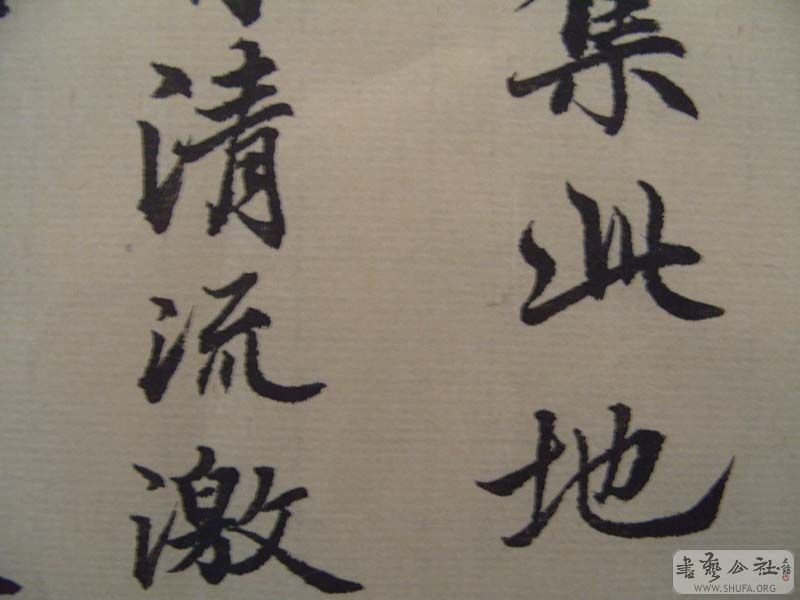 集此地
清流激
書藝公社
WWW.SHUFA.ORG